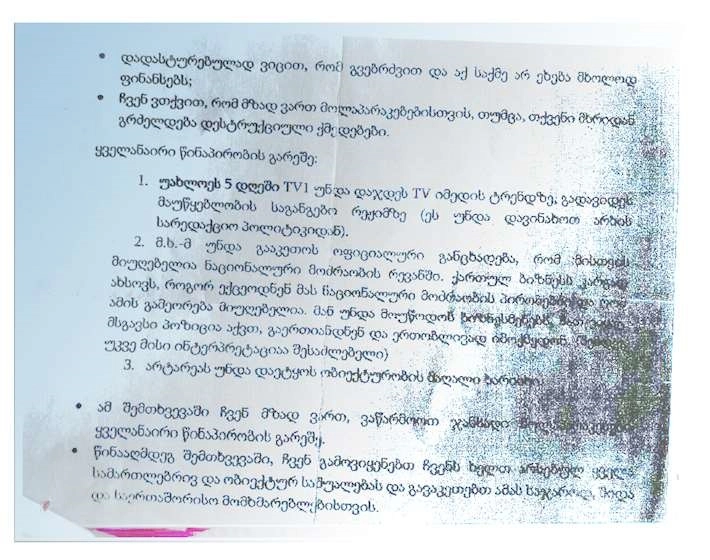 • დადასტურებულად ვიცით, რომ გვებრძვით და აქ საქმე არ ეხება მხოლოდ
ფინანსებს;
• ჩვენ ვთქვით, რომ მზად ვართ მოლაპარაკებებისთვის, თუმცა, თქვენი მხრიდან
გრძელდება დესტრუქციული ქმედებები.
ყველანაირი წინაპირობის გარეშე:
1. უახლოეს 5 დღეში TV1 უნდა დაჯდეს TV იმედის ტრენდზე, გადავიდეს
მაუწყებლობის საგანგებო რეჟიმზე (ეს უნდა დავინახოთ არხის
სარედაქციო პოლიტიკიდან).
2. მ.ხ.-მ უნდა გააკეთოს ოფიციალური განცხადება, რომ მისთვის
მიუღებელია ნაციონალური მოძრაობის რევანში. ქართულ ბიზნესს კარგად
ახსოვს, როგორ ექცეოდნენ მას ნაციონალური მოძრაობის პირობებში და
ამის გამეორება მიუღებელია. მან უნდა მოუწოდოს ბიზნესმენებს, ვისაც
მსგავსი პოზიცია აქვთ, გაერთიანდნენ და ერთობლივად იმოქმედონ.
უკვე მისი ინტერპრეტაციაა შესაძლებელი)
3. არტარეას უნდა დაეტყოს ობიექტურობის მაღალი ხარისხი.
• ამ შემთხვევაში ჩვენ მზად ვართ, ვაწარმოოთ ჯანსაღი მოლაპარაკებები
ყველანაირი წინაპირობის გარეშე.
• წინააღმდეგ შემთხვევაში, ჩვენ გამოვიყენებთ ჩვენს ხელთ არსებულ ყველა
სამართლებრივ და ობიექტურ საშუალებას და გავაკეთებთ ამას საჯაროდ, შიდა
და საერთაშორისო მომხმარებლებისთვის.